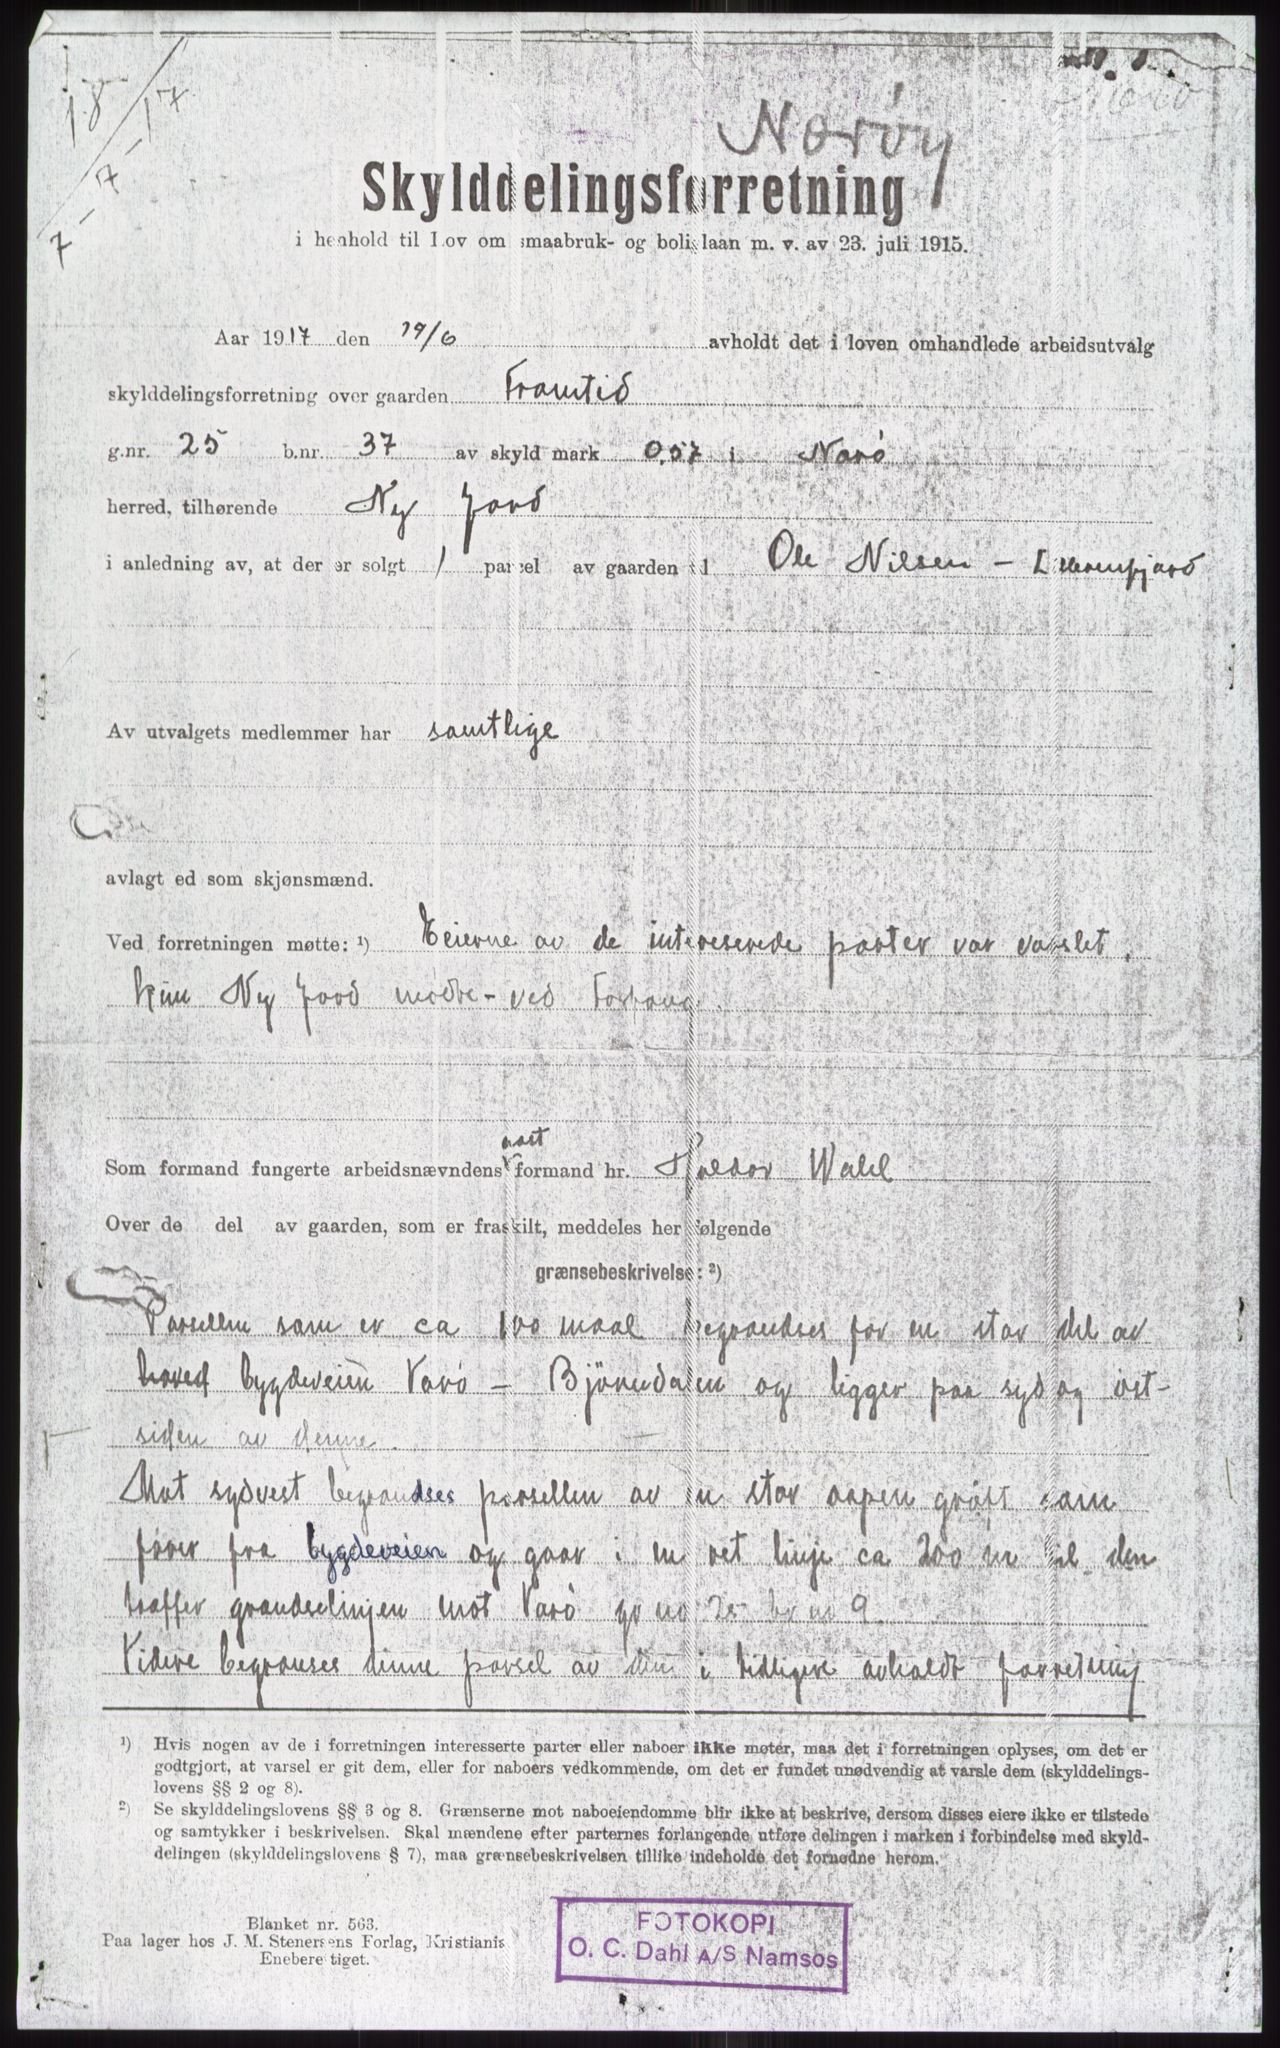 18
7 - 7 - 17
Narøy
Skylddelingsforretning
i henhold til Lov om smaabruk- og boliglaan m. v. av 23. juli 1915.
Aar 1917 den 19/6 avholdt det i loven omhandlede arbeidsutvalg
skylddelingsforretning over gaarden Framtid
g.nr. 25 b.nr. 37 av skyld mark 0,57 i Narø
herred, tilhørende Ny Jord
i anledning av, at der er solgt 1 parcel av gaarden til Ole Nilsen -
Av utvalgets medlemmer har samtlige
avlagt ed som skjønsmænd.
Ved forretningen møtte: 1) Eierne av de intereserede parter var varslet.
kun Ny Jord mødte - ved
Som formand fungerte arbeidsnævndens formand hr. Haldor Wahl
Over de del av gaarden, som er fraskilt, meddeles her følgende
grænsebeskrivelse: 2)
Parsellen som er ca 100 maal begrandses for en stor del av
hoved bygdeveien Varø - Bjørndalen og ligger paa syd og ost-
siden av denne.
Mot sydvest begrandses parsellen av en stor aapen grøft som
fører fra bygdeveien og gaar i en ret linje ca 200 m til den
træffer grandselinjen mot Varø gr no 25 br no 9
Videre begranses denne parsel av den i tidligere avholdt forretning
1) Hvis nogen av de i forretningen interesserte parter eller naboer ikke møter, maa det i forretningen oplyses, om det er
godtgjort, at varsel er git dem, eller for naboers vedkommende, om det er fundet unødvendig at varsle dem (skylddelings-
lovens §§ 2 og 8).
2) Se skylddelingslovens §§ 3 og 8. Grænserne mot naboeiendomme blir ikke at beskrive, dersom disses eiere ikke er tilstede
og samtykker i beskrivelsen. Skal mændene efter parternes forlangende utføre delingen i marken i forbindelse med skyld-
delingen (skylddelingslovens § 7), maa grænsebeskrivelsen tillike indeholde det fornødne herom.
Blanket nr. 563.
Paa lager hos J. M. Stenersens Forlag, Kristiania
Eneberettiget.
FOTOKOPI
O. C. Dahl A/S Namsos